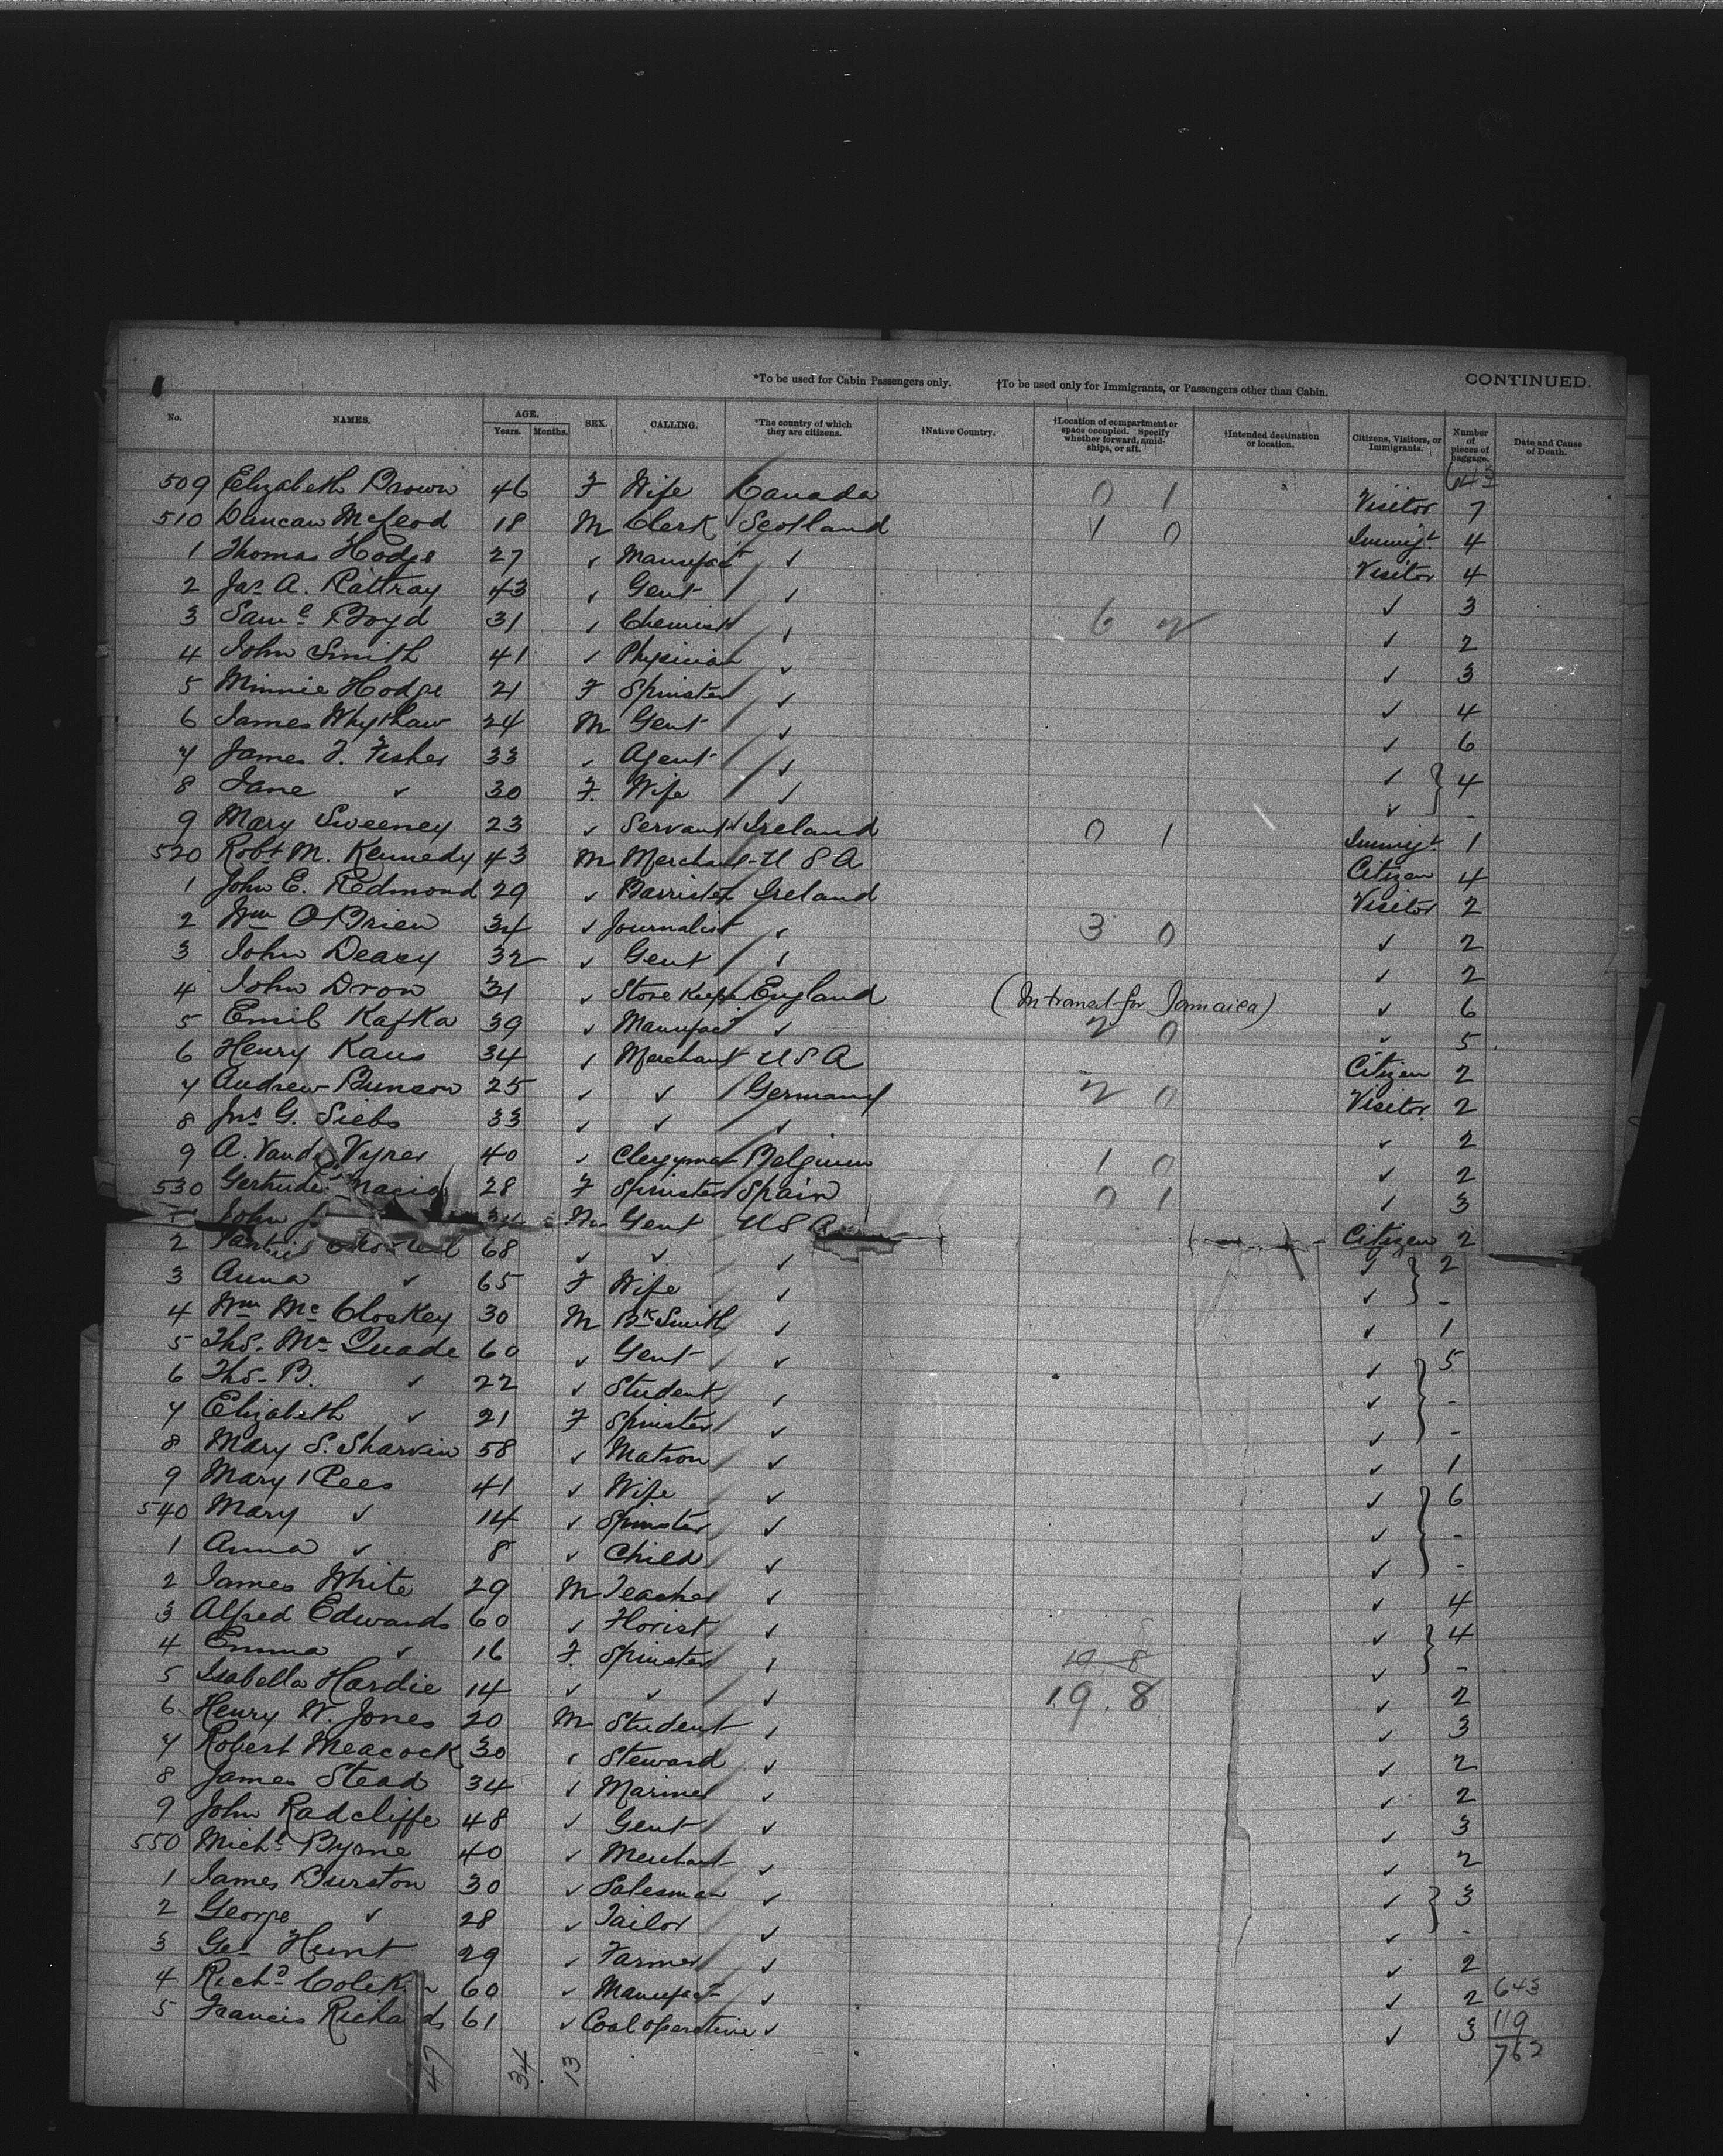 *To be used for Cabin Passengers only. †To be used only for Immigrants, or Passengers other than Cabin. CONTINUED.
No. NAMES. AGE. Years. Months. SEX. CALLING. *The country of which they are citizens. †Native Country. †Location of compartment or space occupied. Specify whether forward, amidships, or aft. †Intended destination or location. Citizens, Visitors, or Immigrants. Number of pieces of baggage. Date and Cause of Death.
643
509 Elizabeth Brown 46 F Wife Canada 0 1 Visitor 7
510 Duncan McLeod 18 M Clerk Scotland 1 0 Immigt. 4
1 Thomas Hodge 27 ✓ Manufact ✓ Visitor 4
2 Jas. A. Rattray 43 ✓ Gent ✓ ✓ 3
3 Saml Boyd 31 ✓ Chemist ✓ 6 2 ✓ 2
4 John Smith 41 ✓ Physician ✓ ✓ 3
5 Minnie Hodge 21 F Spinster ✓ ✓ 4
6 James Whythaw 24 M Gent ✓ ✓ 6
7 James F. Fisher 33 ✓ Agent ✓ ✓ 4
8 Jane ✓ 30 F. Wife ✓ ✓ -
9 Mary Sweeney 23 ✓ Servant Ireland 0 1 Immigt. 1
520 Robt M. Kennedy 43 M Merchant U S A Citizen 4
1 John E. Redmond 29 ✓ Barrister Ireland Visitor 2
2 Wm O'Brien 34 ✓ Journalist ✓ 3 0 ✓ 2
3 John Deasy 32 ✓ Gent ✓ ✓ 2
4 John Dron 31 ✓ Store Keeper England (In transit for Jamaica) ✓ 6
5 Emil Kafka 39 ✓ Manufact ✓ 2 0 ✓ 5
6 Henry Kaus 34 ✓ Merchant U S A Citizen 2
7 Andrew Bunson 25 ✓ ✓ Germany 2 0 Visitor 2
8 Jno. G. Siebs 33 ✓ ✓ ✓ ✓ 2
9 A. Vand Vyver 40 ✓ Clergyman Belgium 1 0 ✓ 2
530 Gertrude 28 F Spinster Spain 0 1 ✓ 3
1 John J. M Gent U S A Citizen 2
2 68 ✓ ✓ ✓ ✓ 2
3 Anna ✓ 65 F Wife ✓ ✓ -
4 Wm McCloskey 30 M Bk Smith ✓ ✓ 1
5 Ths. McQuade 60 ✓ Gent ✓ ✓ 5
6 Ths. B. ✓ 22 ✓ Student ✓ ✓ -
7 Elizabeth ✓ 21 F Spinster ✓ ✓ -
8 Mary S. Sharvin 58 ✓ Matron ✓ ✓ 1
9 Mary Rees 41 ✓ Wife ✓ ✓ 6
540 Mary ✓ 14 ✓ Spinster ✓ ✓ -
1 Anna ✓ 8 ✓ Child ✓ ✓ -
2 James White 29 M Teacher ✓ ✓ 4
3 Alfred Edwards 60 ✓ Florist ✓ ✓ 4
4 Emma ✓ 16 F. Spinster ✓ 19 8 ✓ -
5 Isabella Hardie 14 ✓ ✓ ✓ 19.8 ✓ 2
6 Henry W. Jones 20 M Student ✓ ✓ 3
7 Robert Meacock 30 ✓ Steward ✓ ✓ 2
8 James Stead 34 ✓ Mariner ✓ ✓ 2
9 John Radcliffe 48 ✓ Gent ✓ ✓ 3
550 Michl Byrne 40 ✓ Merchant ✓ ✓ 2
1 James Burston 30 ✓ Salesman ✓ ✓ 3
2 George ✓ 28 ✓ Tailor ✓ ✓ -
3 Geo Hunt 29 ✓ Farmer ✓ ✓ 2
4 Richd 60 ✓ Manufact ✓ ✓ 2 643
5 Francis Richards 61 ✓ Coal operative ✓ ✓ 3 119
762
47 34 13